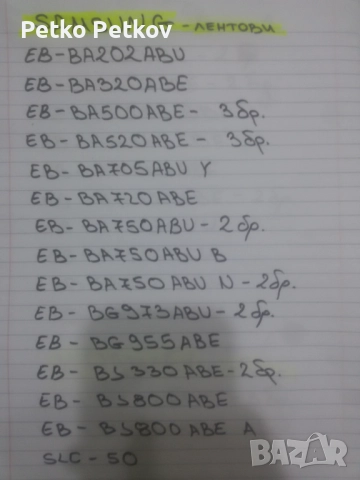 Petko Petkov
SAMSUNG - ЛЕНТОВИ
EB-BA202ABU
EB-BA320ABE
EB-BA500ABE- 3бр.
EB-BA520ABE- 3бр.
EB-BA705ABU Y
EB-BA720ABE
EB-BA750ABU-2бр.
EB-BA750ABU B
EB-BA750ABU N-2бр.
EB-BG973ABU-2бр.
EB-BG955ABE
EB-BJ330ABE-2бр.
EB-BJ800ABE
EB-BJ800ABE A
SLC-50
BAZAR